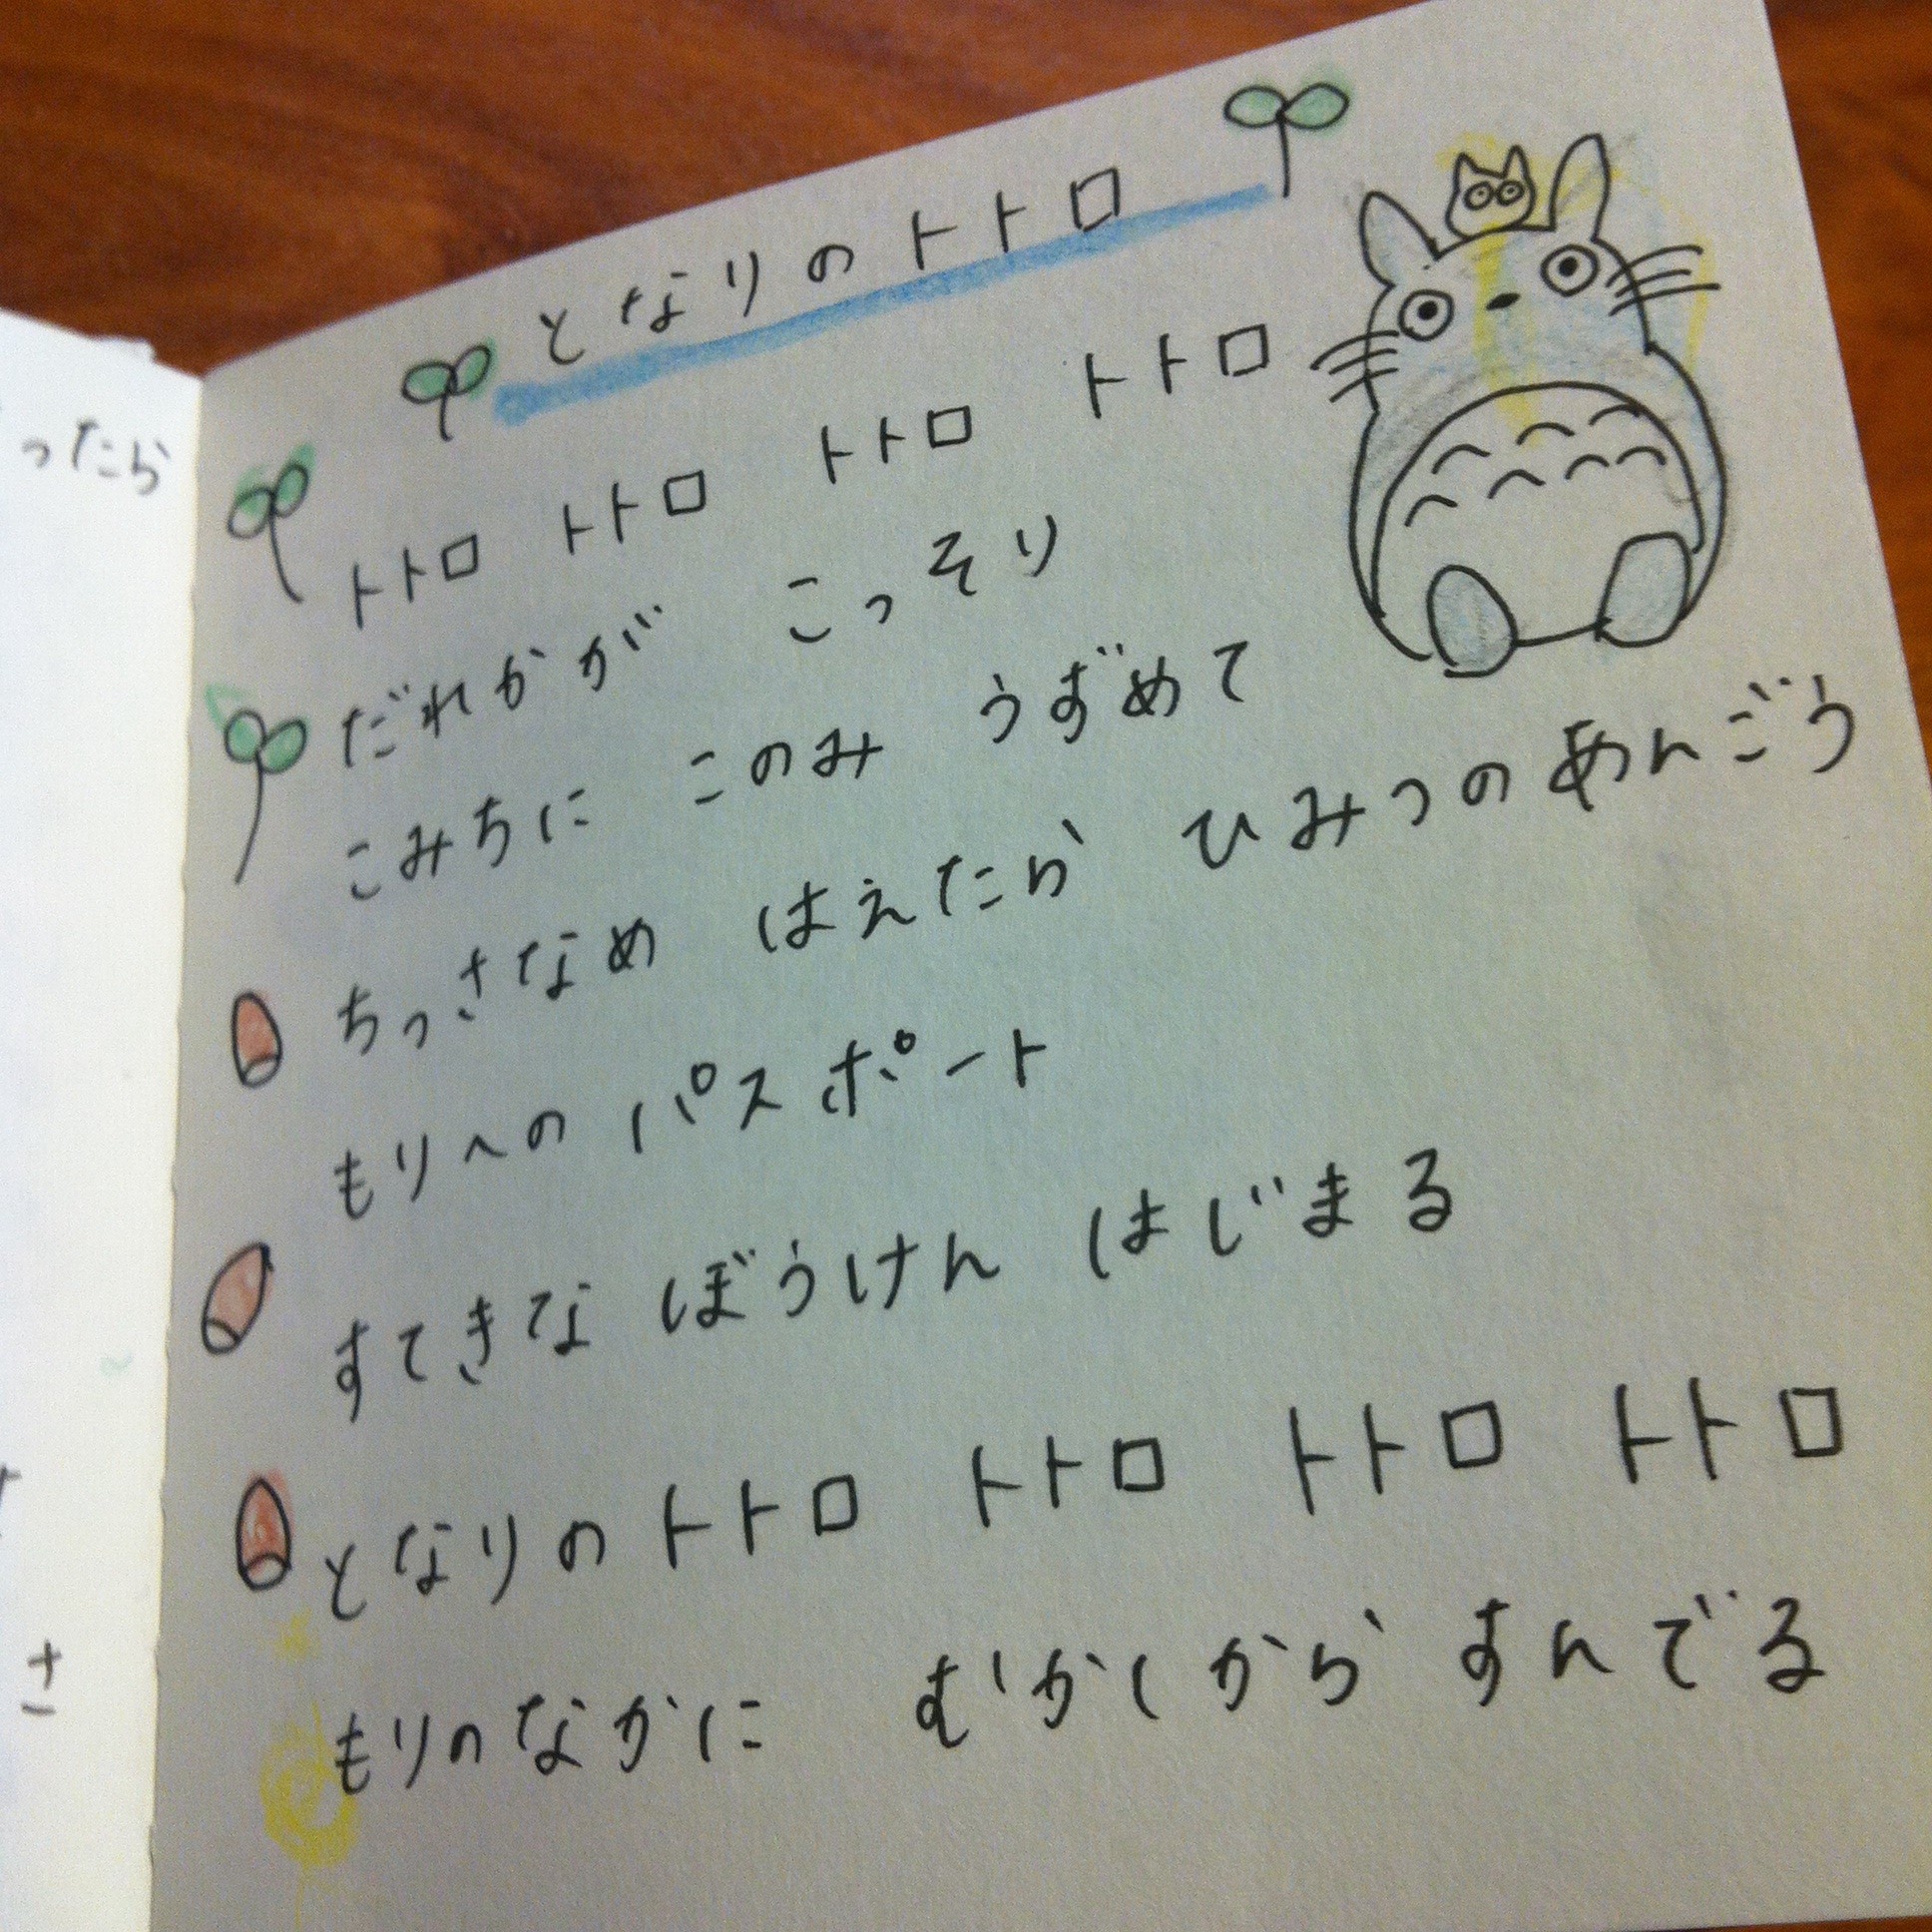 ったら
さ
となりのトトロ
トトロ トトロ トトロ トトロ
だれかが こっそり
こみちに このみ うずめて
ちっさなめ はえたら ひみつのあんごう
もりへの パスポート
すてきな ぼうけん はじまる
となりのトトロ トトロ トトロ トトロ
もりのなかに むかしから すんでる